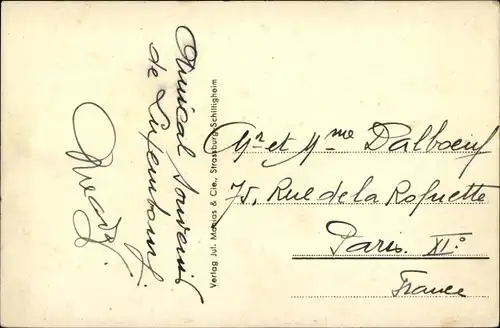 Amical souvenir
de Luxembourg
Verlag Jul. Manias & Cie., Strassburg-Schiltigheim
Mr et Mme Dalboeuf
75, Rue de la Roquette
Paris XI°
France